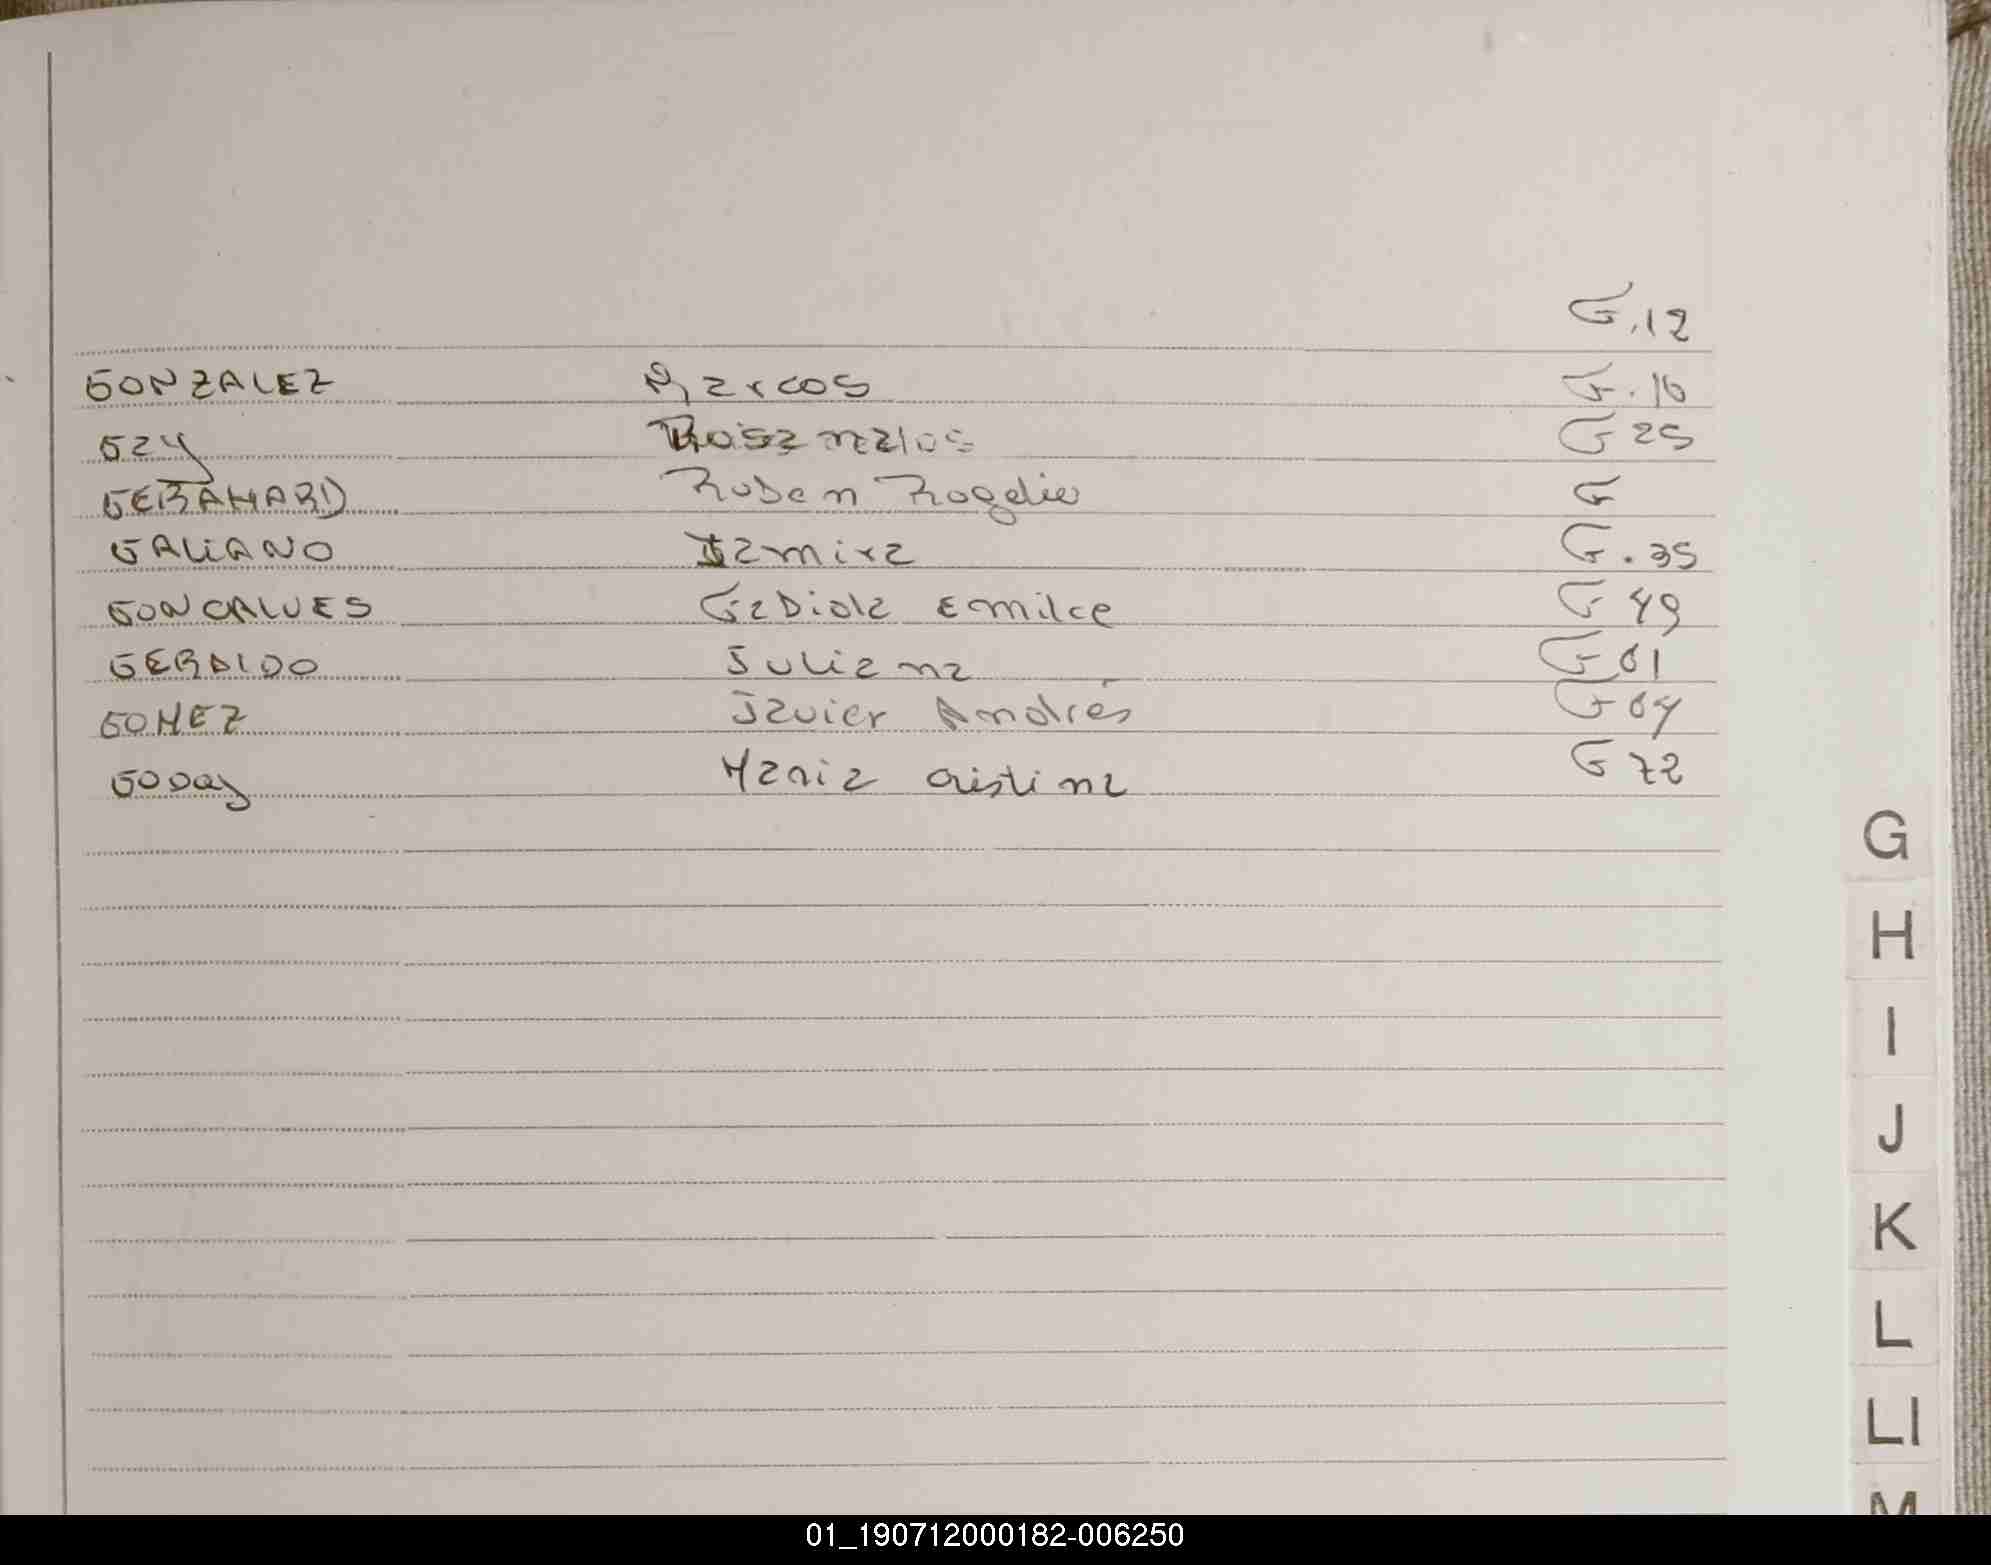 G.12
GONZALEZ Marcos G.16
Gay Rosa G 25
GERAHARD Ruben Rogelio G
GALIANO Damira G.35
GONCALVES Gabiola Emilce G 49
GERALDO Juliana G 61
GOMEZ Javier Andrés G 64
GODOY Maria Cristina G 72
G
H
I
J
K
L
Ll
M
01_190712000182-006250